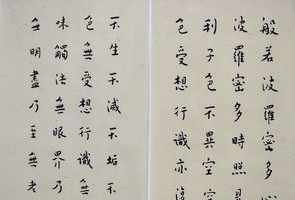 般若波羅蜜多心
波羅蜜多時照見
利子色不異空空
色受想行識亦復
不生不滅不垢不
色無受想行識無
味觸法無眼界乃
無明盡乃至無老